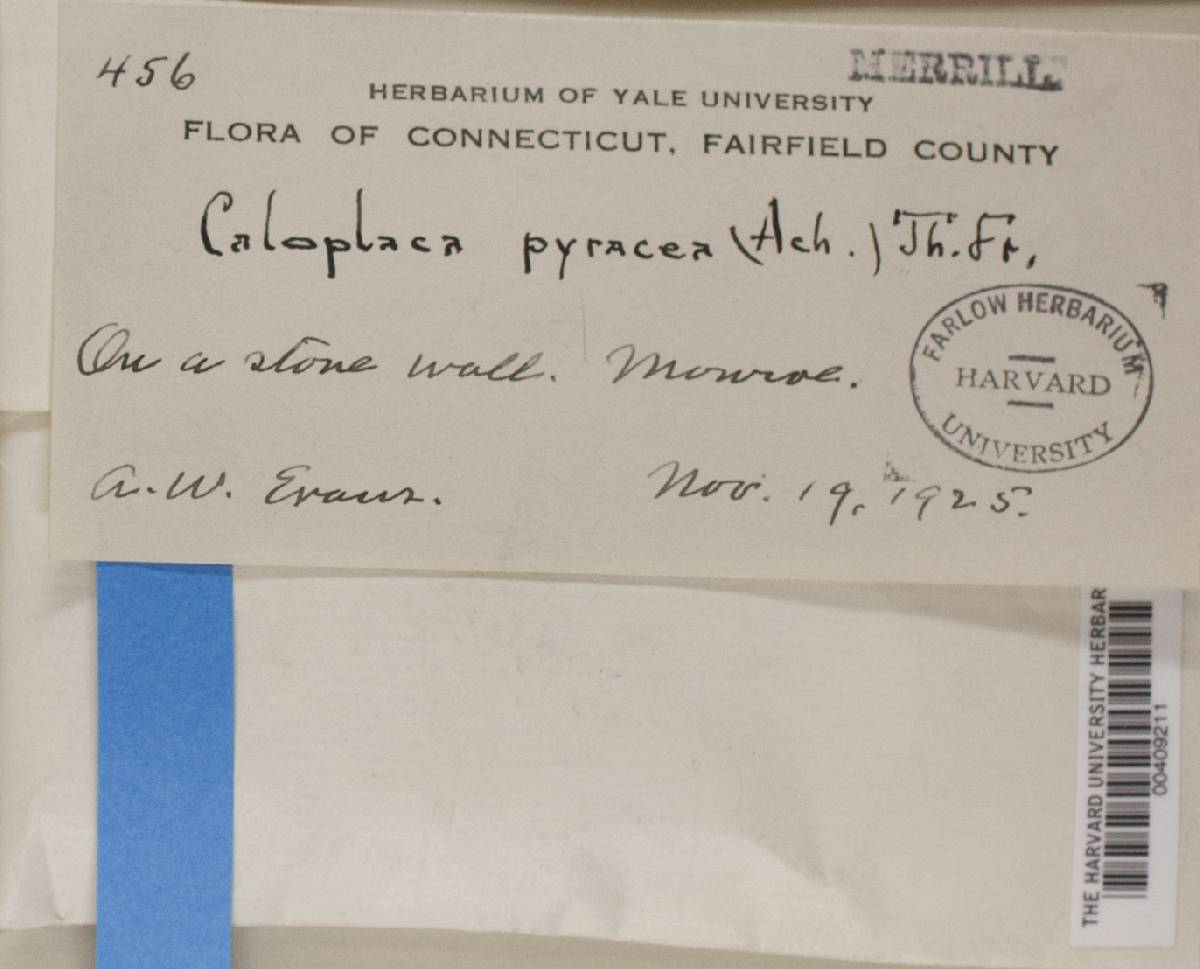 456
MERRILL
HERBARIUM OF YALE UNIVERSITY
FLORA OF CONNECTICUT, FAIRFIELD COUNTY
Caloplaca pyracea (Ach.) Th. Fr.
On a stone wall. Monroe.
FARLOW HERBARIUM
HARVARD
UNIVERSITY
A. W. Evans.
Nov. 19, 1925.
THE HARVARD UNIVERSITY HERBAR
00409211